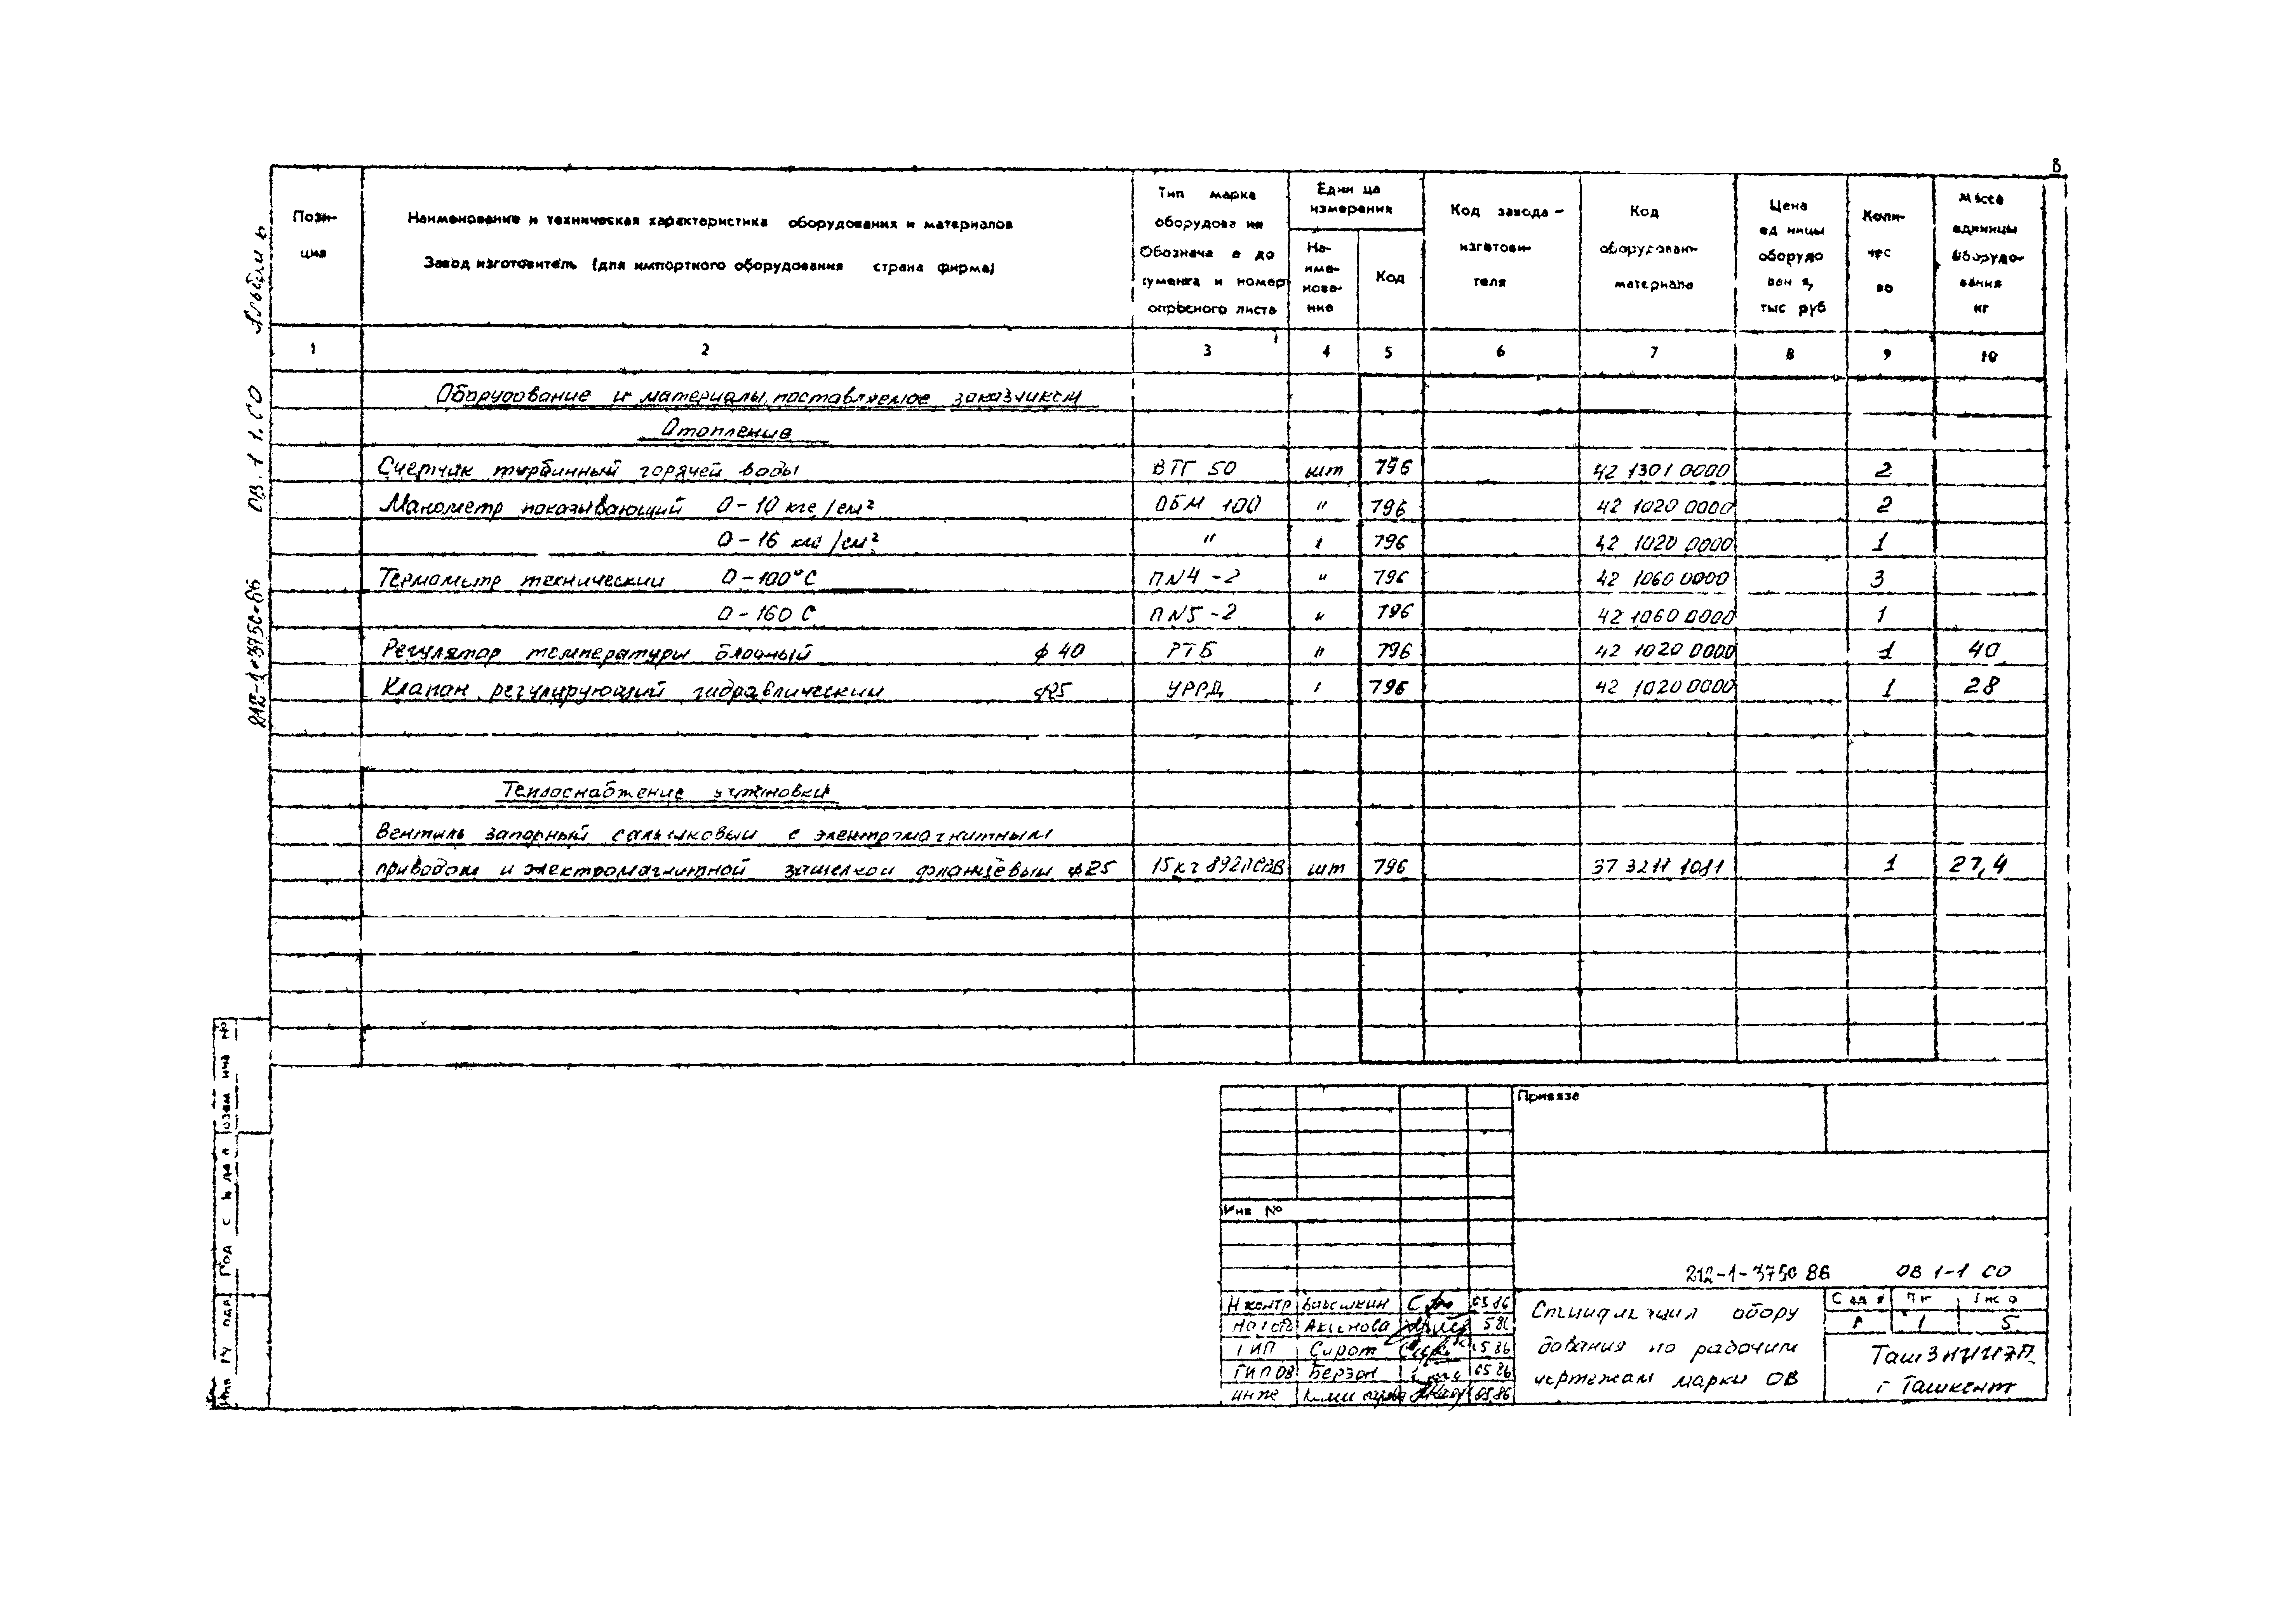 8
Пози-
ция
Наименование и техническая характеристика оборудования и материалов
Завод изготовитель (для импортного оборудования страна фирма)
Тип марка
оборудова ия
Обозначе е до
кумента и номер
опросного листа
Един ца
измерения
На-
име-
нова-
ние
Код
Код завода-
изготови-
теля
Код
оборудован-
материала
Цена
ед ницы
оборудо
ван я,
тыс руб
Коли-
чес
во
Масса
единицы
оборудо-
вания
кг
1 2 3 4 5 6 7 8 9 10
Оборудование и материалы, поставляемое заказчиком
Отопление
Счетчик турбинный горячей воды ВТГ 50 шт 796 42 1301 0000 2
Манометр показывающий 0-10 кгс/см² ОБМ 100 " 796 42 1020 0000 2
0-16 кгс/см² " 796 42 1020 0000 1
Термометр технический 0-100°С П№4-2 " 796 42 1060 0000 3
0-160 С П№5-2 " 796 42 1060 0000 1
Регулятор температуры блочный ф 40 РТБ " 796 42 1020 0000 1 40
Клапан регулирующий гидравлический ф25 УРРД 796 42 1020 0000 1 28
Теплоснабжение установки
Вентиль запорный сальниковый с электромагнитным
приводом и электромагнитной защелкой фланцевый ф25 шт 796 37 3211 1081 1 27,4
Альбом
ОВ. 1 1. СО
Привяза
Инв №
212-1-375с 86 ОВ 1-1 СО
Н контр 05.86
Аксенова 5 86
ГИП Сирот 05.86
ГИП ОВ Берзон 05 86
инже 05.86
Спецификация обору
дования по рабочим
чертежам марки ОВ
Р 1 5
ТашЗНИИЭП
г Ташкент
взам инв №
Под